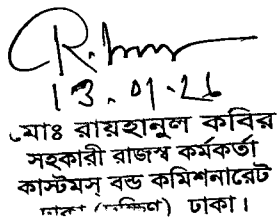 13.01.26
মোঃ রায়হানুল কবির
সহকারী রাজস্ব কর্মকর্তা
কাস্টমস্ বন্ড কমিশনারেট
ঢাকা (দক্ষিণ) ঢাকা।